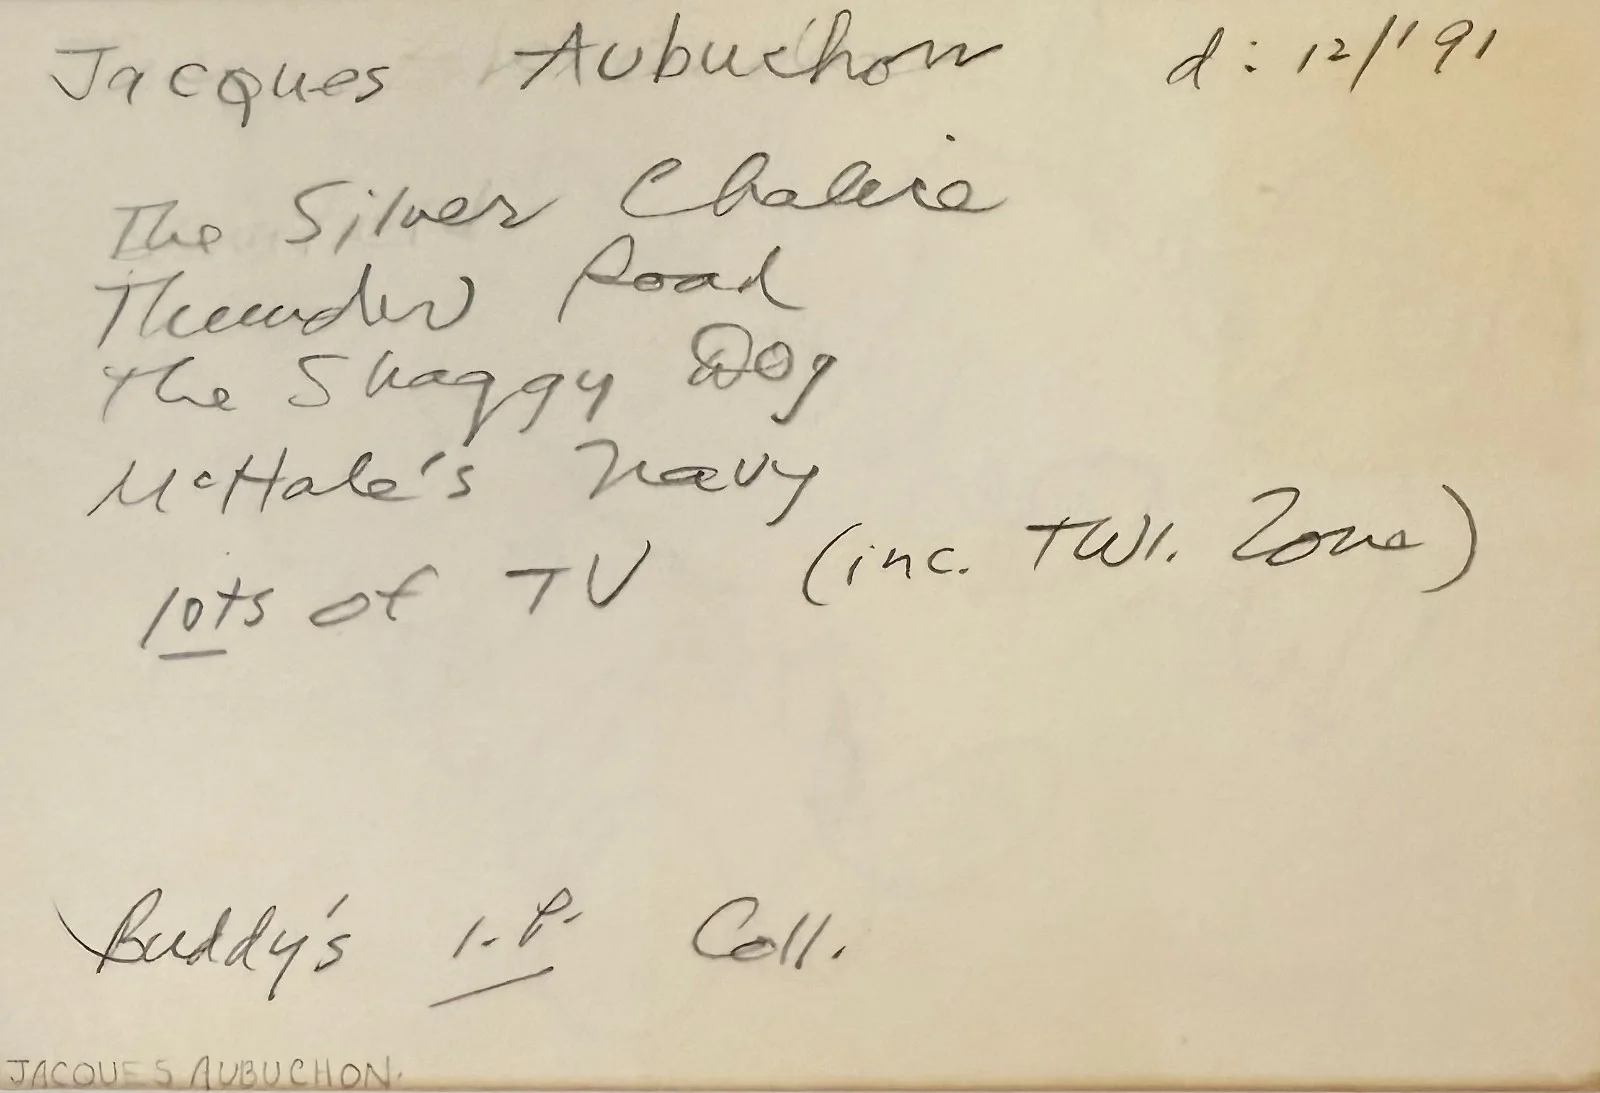 Jacques Aubuchon d: 12/'91
The Silver Chalice
Thunder Road
The Shaggy Dog
McHale's Navy
lots of TV (inc. TWI. Zone)
Buddy's I.P. Coll.
JACQUES AUBUCHON.